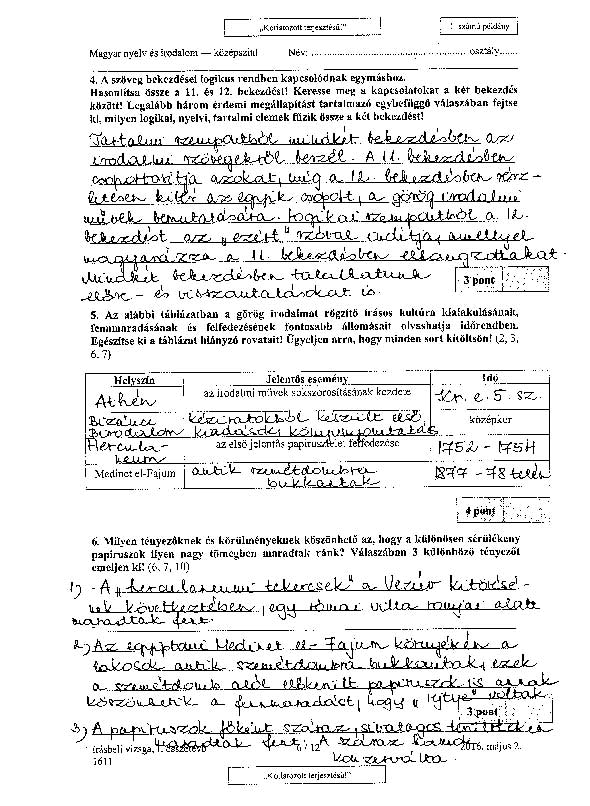 „Korlátozott terjesztésű!"
1. számú példány
Magyar nyelv és irodalom — középszint Név: ........................................................... osztály:......
4. A szöveg bekezdései logikus rendben kapcsolódnak egymáshoz.
Hasonlítsa össze a 11. és 12. bekezdést! Keresse meg a kapcsolatokat a két bekezdés
között! Legalább három érdemi megállapítást tartalmazó egybefüggő válaszában fejtse
ki, milyen logikai, nyelvi, tartalmi elemek fűzik össze a két bekezdést!
Tartalmi szempontból mindkét bekezdésben az
irodalmi szövegekről beszél. A 11. bekezdésben
csoportosítja azokat, míg a 12. bekezdésben rész-
letesen kitér az egyik csoport, a görög irodalmi
művek bemutatására. Logikai szempontból a 12.
bekezdést az „ezért" szóval indítja, amellyel
magyarázza a 11. bekezdésben elhangzottakat.
Mindkét bekezdésben találhatunk
előre - és visszautalásokat is.
3 pont
5. Az alábbi táblázatban a görög irodalmat rögzítő írásos kultúra kialakulásának,
fennmaradásának és felfedezésének fontosabb állomásait olvashatja időrendben.
Egészítse ki a táblázat hiányzó rovatait! Ügyeljen arra, hogy minden sort kitöltsön! (2, 3,
6, 7)
Helyszín Jelentős esemény Idő
Athén az irodalmi művek sokszorosításának kezdete Kr. e. 5. sz.
Bizánci Birodalom kéziratokból készült első kiadások könyvnyomtatás középkor
Hercula-neum az első jelentős papirusztekercs felfedezése 1752 - 1754
Medinet el-Fajum antik szemétdombra bukkantak 1877 - 78 telén
4 pont
6. Milyen tényezőknek és körülményeknek köszönhető az, hogy a különösen sérülékeny
papiruszok ilyen nagy tömegben maradtak ránk? Válaszában 3 különböző tényezőt
emeljen ki! (6, 7, 10)
1) - A „herculaneumi tekercsek" a Vezúv kitörésé-
nek következtében, egy római villa romjai alatt
maradtak fent.
2) Az egyiptomi Medinet el-Fajum környékén a
lakosok antik szemétdombra bukkantak, ezek
a szemétdomb alól előkerült papiruszok is annak
köszönhetik a fennmaradást, hogy „rejtve" voltak
3 pont
3) A papiruszok főként száraz, sivatagos területeken
maradtak fent. A száraz homok
konzerválta.
írásbeli vizsga, I. összetevő 6 / 12 2016. május 2.
1611
„Korlátozott terjesztésű!"